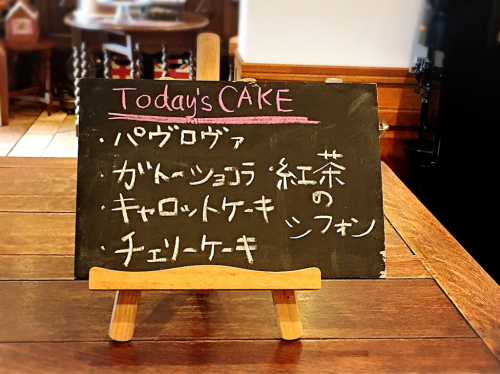 Today's CAKE
・パヴロヴァ
・ガトーショコラ
・キャロットケーキ
・チェリーケーキ
・紅茶
の
シフォン